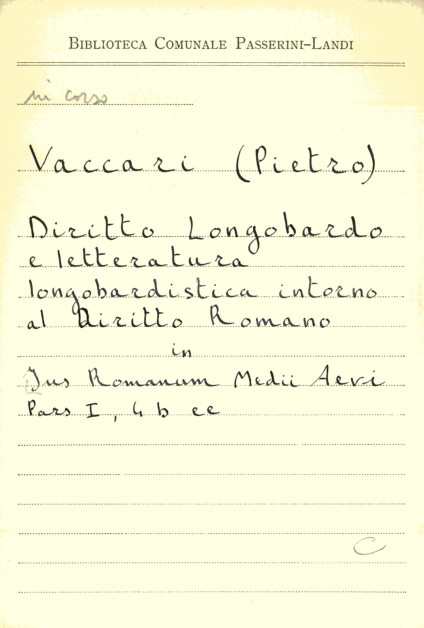 BIBLIOTECA COMUNALE PASSERINI-LANDI
in corso
Vaccari (Pietro)
Diritto Longobardo
e letteratura
longobardistica intorno
al Diritto Romano
in
Jus Romanum Medii Aevi
Pars I, 4 b ee
C